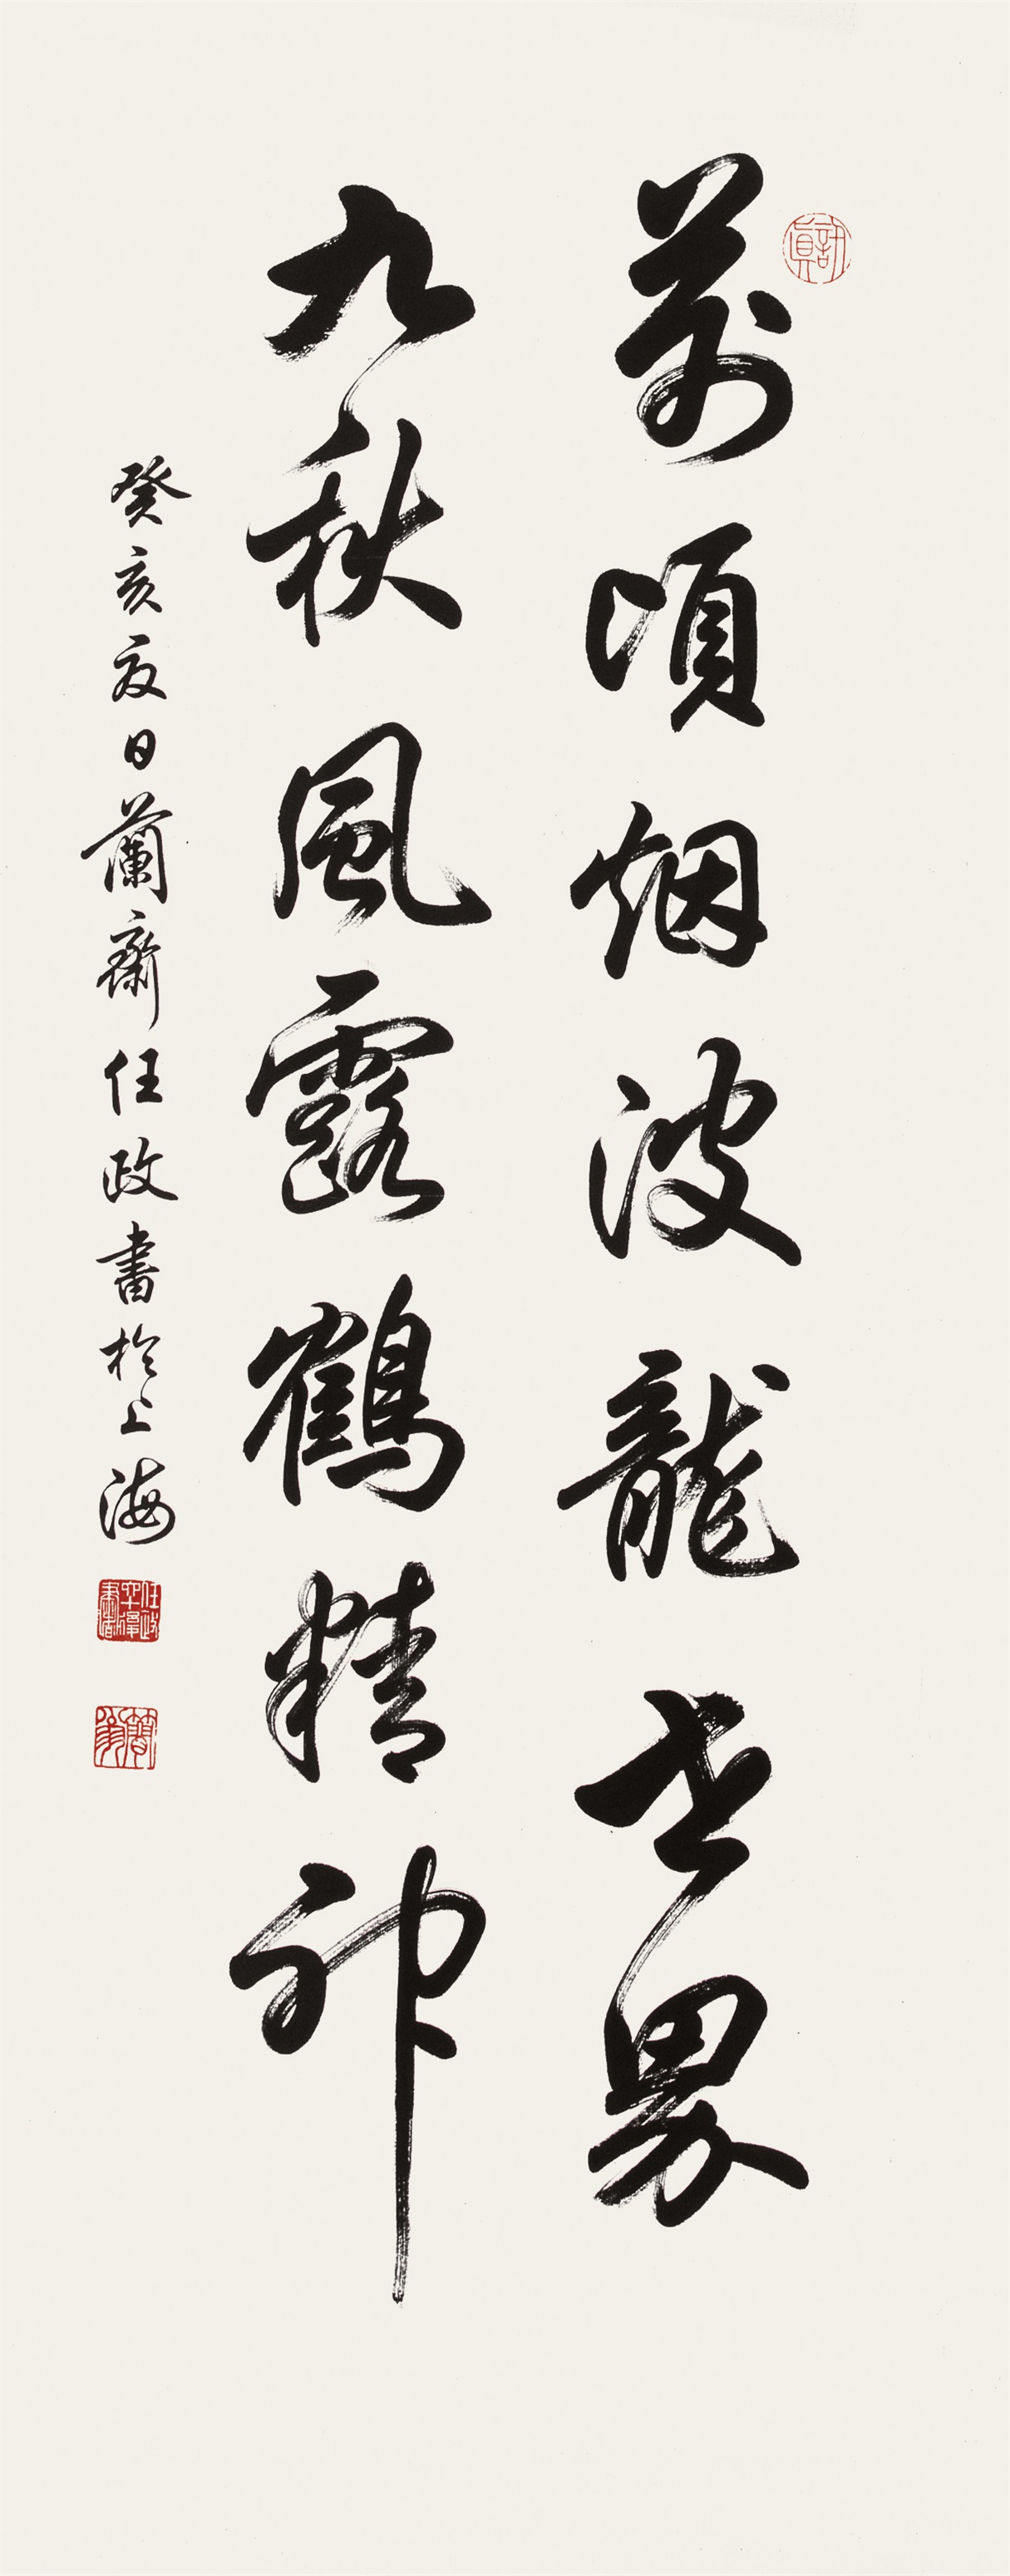 萬頃烟波龍世界
九秋風露鶴精神
癸亥夏日蘭齋任政書於上海